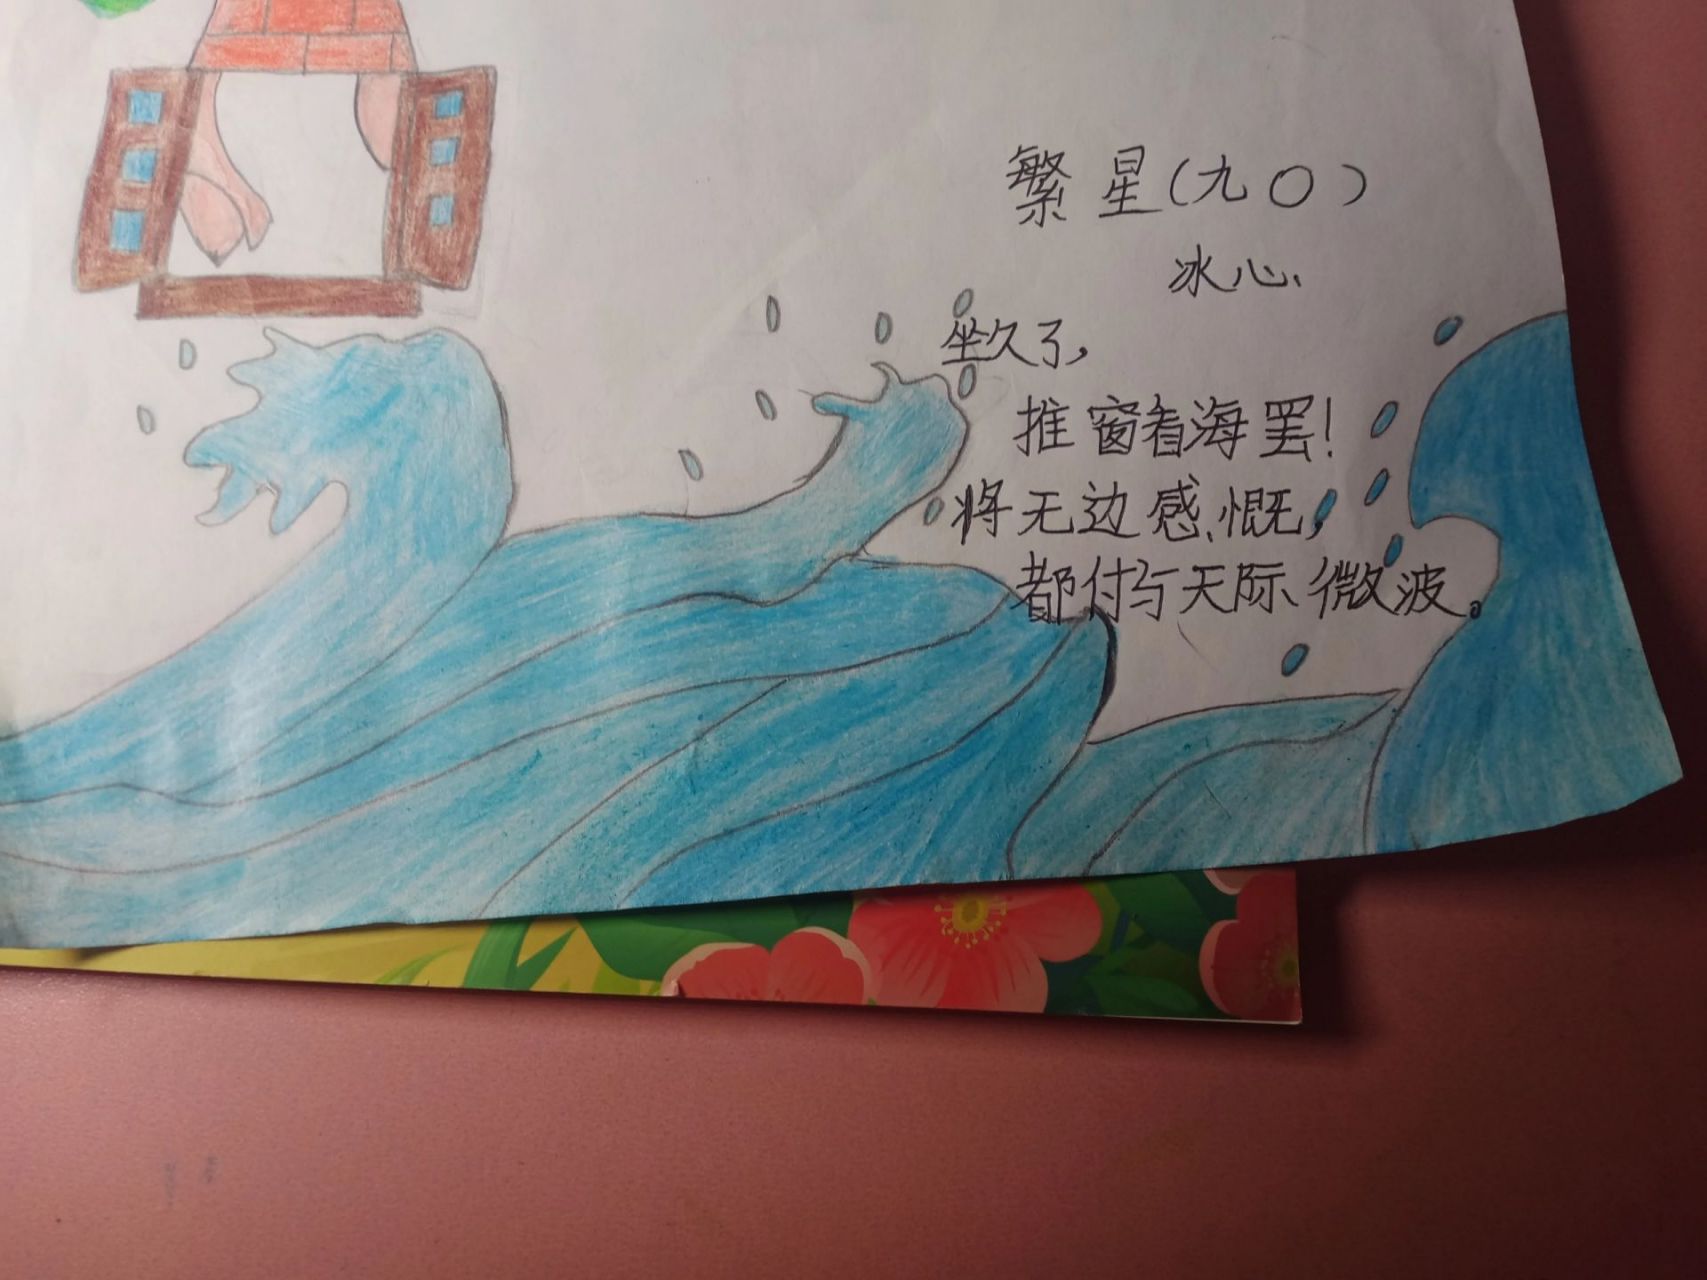 繁星(九〇)
冰心
坐久了,
推窗看海罢!
将无边感慨,
都付与天际微波。